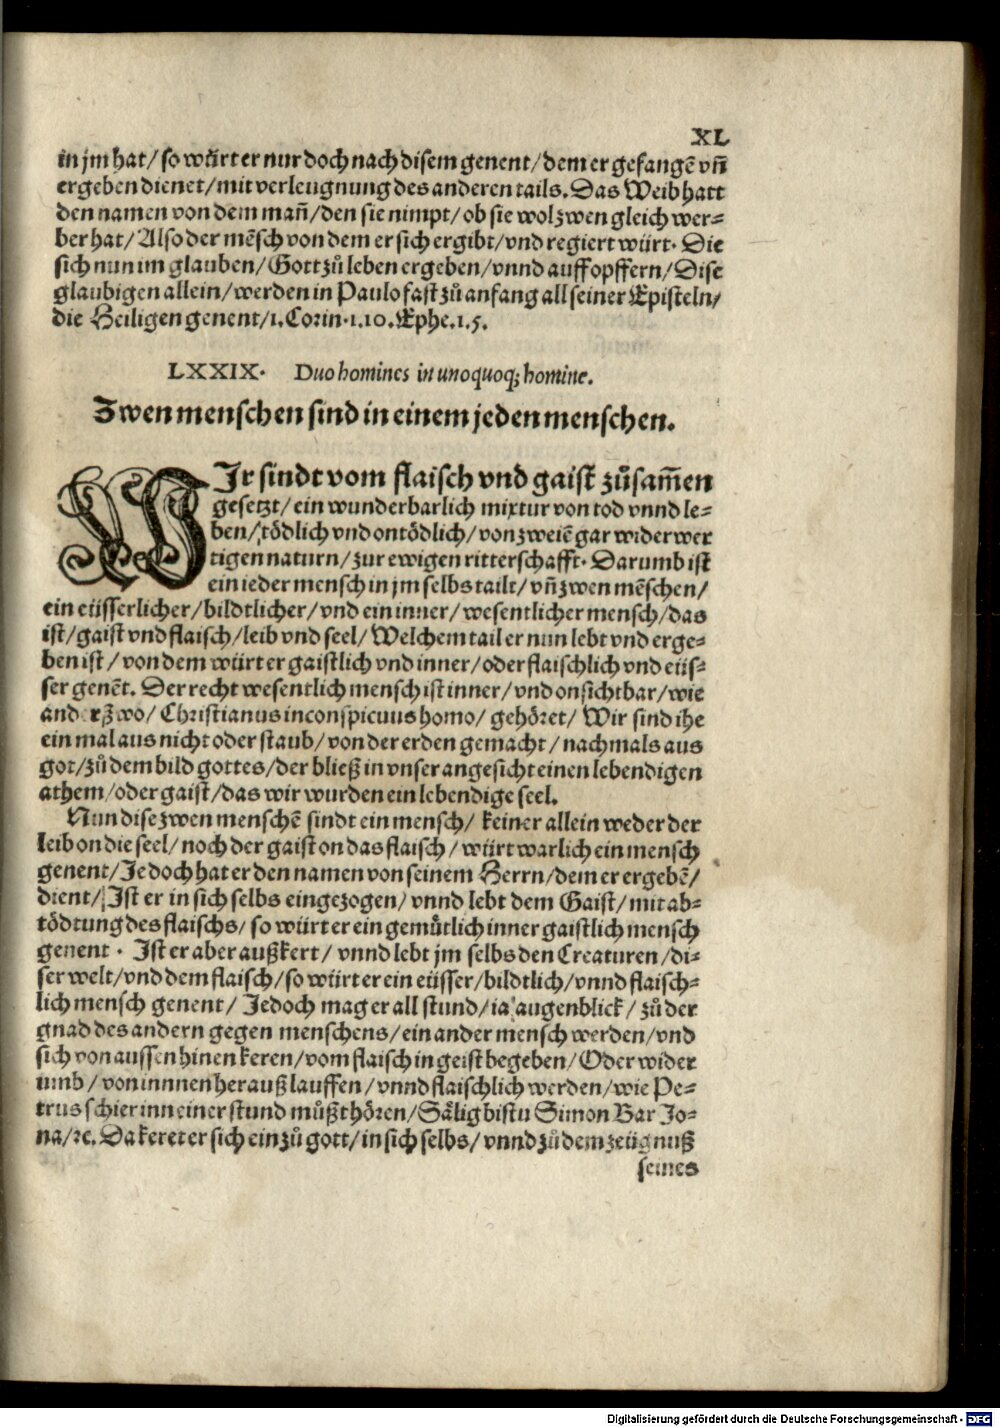 XL
in jm hat/ so würt er nur doch nach disem genent/ dem er gefangē vñ
ergeben dienet/ mit verleugnung des anderen tails. Das Weib hatt
den namen von dem mañ/ den sie nimpt/ ob sie wol zwen gleich wer⸗
ber hat/ Also der mēsch von dem er sich ergibt/ vnd regiert würt. Die
sich nun im glauben/ Gott zů leben ergeben/ vnnd auffopffern/ Dise
glaubigen allein/ werden in Paulo fast zů anfang all seiner Episteln/
die Heiligen genent/ 1. Corin. 1.10. Ephe. 1.5.
LXXIX. Duo homines in unoquoq; homine.
Zwen menschen sind in einem jeden menschen.
WJr sindt vom flaisch vnd gaist zůsam̄en
gesetzt/ ein wunderbarlich mixtur von tod vnnd le⸗
ben/ tödlich vnd ontödlich/ von zweiē gar widerwer
tigen naturn/ zur ewigen ritterschafft. Darumb ist
ein ieder mensch in jm selbs tailt/ vñ zwen mēschen/
ein eüsserlicher/ bildtlicher/ vnd ein inner/ wesentlicher mensch/ das
ist/ gaist vnd flaisch/ leib vnd seel/ Welchem tail er nun lebt vnd erge⸗
ben ist/ von dem würt er gaistlich vnd inner/ oder flaischlich vnd eüs⸗
ser genēt. Der recht wesentlich mensch ist inner/ vnd onsichtbar/ wie
anderßwo/ Christianus inconspicuus homo/ gehöret/ Wir sind ihe
ein mal aus nicht oder staub/ von der erden gemacht/ nachmals aus
got/ zů dem bild gottes/ der bließ in vnser angesicht einen lebendigen
athem/ oder gaist/ das wir wurden ein lebendige seel.
Nun dise zwen menschē sindt ein mensch/ keiner allein weder der
leib on die seel/ noch der gaist on das flaisch/ würt warlich ein mensch
genent/ Jedoch hat er den namen von seinem Herrn/ dem er ergebē/
dient/ Jst er in sich selbs eingezogen/ vnnd lebt dem Gaist/ mit ab⸗
tödtung des flaischs/ so würt er ein gemütlich inner gaistlich mensch
genent. Jst er aber außkert/ vnnd lebt jm selbs den Creaturen/ di⸗
ser welt/ vnd dem flaisch/ so würt er ein eüsser/ bildtlich/ vnnd flaisch⸗
lich mensch genent/ Jedoch mag er all stund/ ia augenblick/ zů der
gnad des andern gegen menschens/ ein ander mensch werden/ vnd
sich von aussen hinen keren/ vom flaisch in geist begeben/ Oder wider
umb/ von innnen herauß lauffen/ vnnd flaischlich werden/ wie Pe⸗
trus schier inn einer stund můßt hören/ Sälig bistu Simon Bar Jo⸗
na/ ꝛc. Da keret er sich ein zů gott/ in sich selbs/ vnnd zů dem zeügnuß
seines
Digitalisierung gefördert durch die Deutsche Forschungsgemeinschaft - DFG